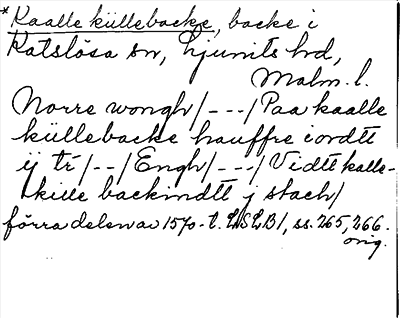 *Kaalle küllebacke, backe i
Katslösa sn, Ljunits hd,
Malm. l.
Norre wongh/---/Paa kaalle
küllebacke hauffre iordtt
ij tr/--/Engh/---/Vidtt kalle-
kille backendtt j stach/
förra delen av 1570-t. LSLB1, ss. 265, 266.
orig.